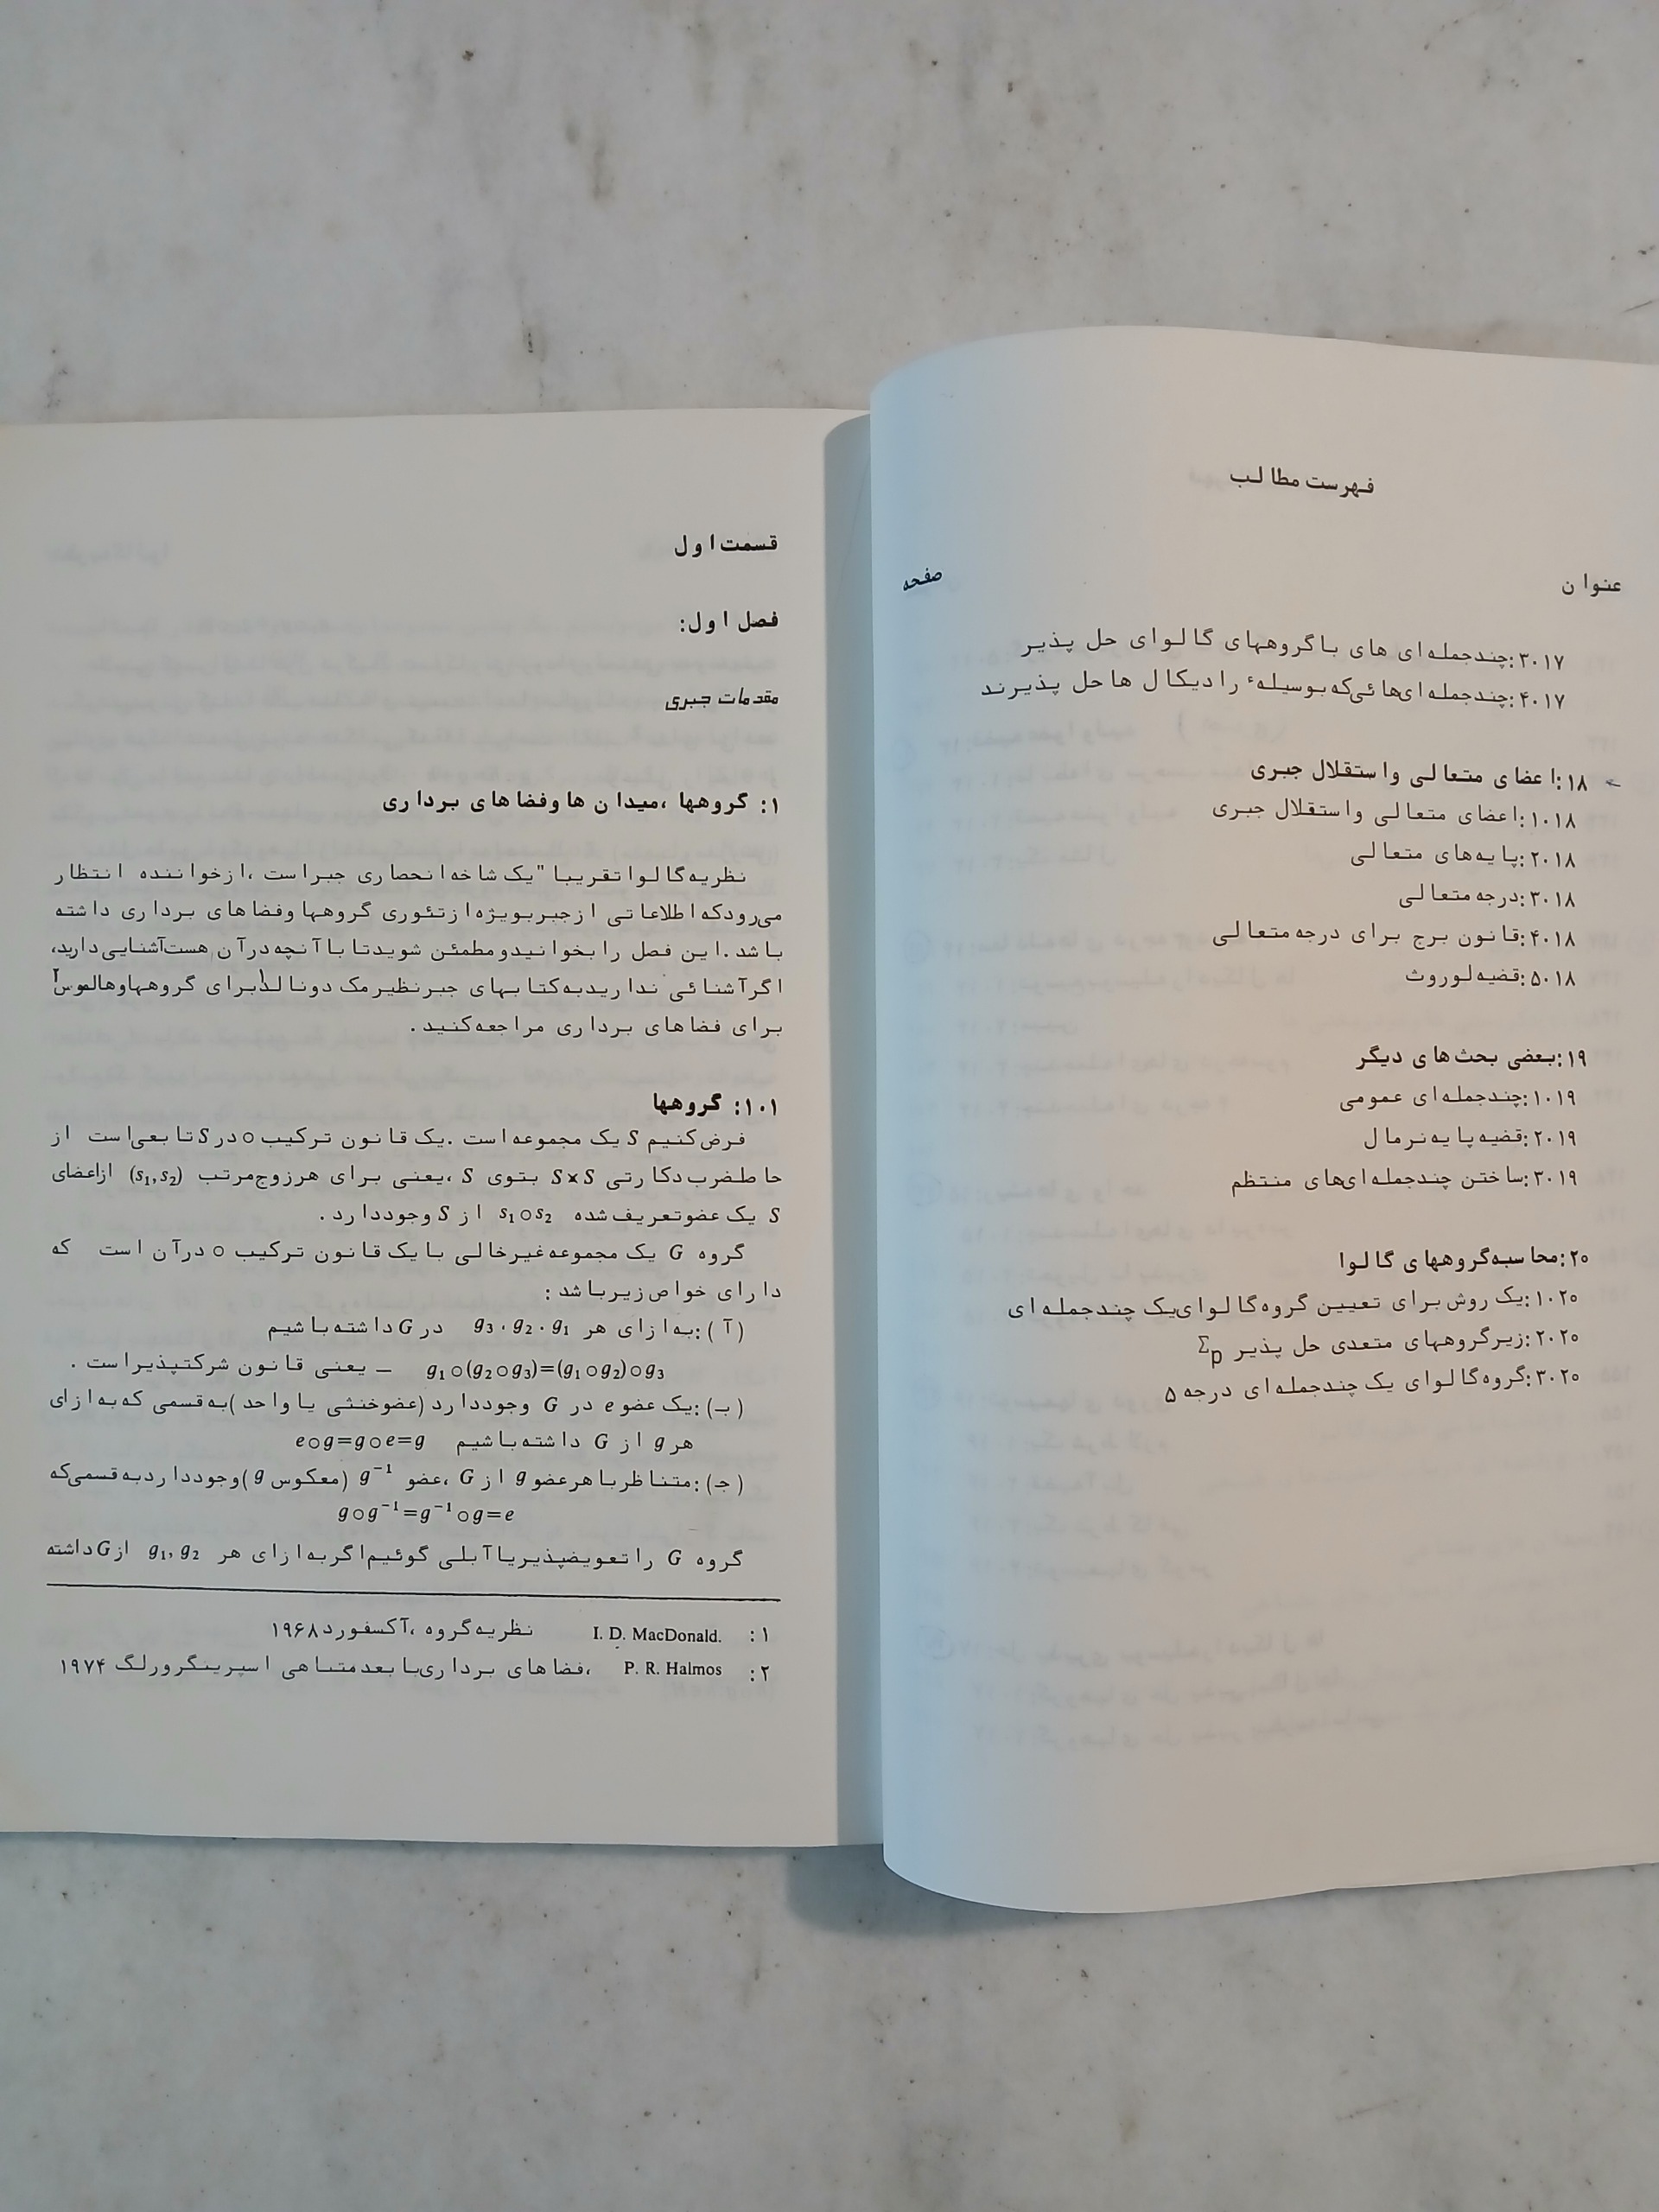 فهرست مطالب
عنوان صفحه
۳.۱۷:چندجمله‌ای های با گروههای گالوای حل پذیر
۴.۱۷:چندجمله‌ای‌هائی‌که بوسیلهء رادیکال ها حل پذیرند
۱۸:اعضای متعالی و استقلال جبری
۱.۱۸:اعضای متعالی و استقلال جبری
۲.۱۸:پایه‌های متعالی
۳.۱۸:درجه متعالی
۴.۱۸:قانون برج برای درجه متعالی
۵.۱۸:قضیه لوروث
۱۹:بعضی بحث‌های دیگر
۱.۱۹:چندجمله‌ای عمومی
۲.۱۹:قضیه پایه نرمال
۳.۱۹:ساختن چندجمله‌ای‌های منتظم
۲۰:محاسبه گروههای گالوا
۱.۲۰:یک روش برای تعیین گروه گالوای یک چندجمله‌ای
۲.۲۰:زیرگروههای متعدی حل پذیر Σp
۳.۲۰:گروه گالوای یک چندجمله‌ای درجه ۵
قسمت اول
فصل اول:
مقدمات جبری
۱: گروهها ،میدان ها وفضاهای برداری
نظریه گالوا تقریبا "یک شاخه انحصاری جبر است ،از خواننده انتظار
می‌رود که اطلاعاتی از جبر بویژه از تئوری گروهها و فضاهای برداری داشته
باشد .این فصل را بخوانید و مطمئن شوید تا با آنچه در آن هست آشنایی دارید،
اگر آشنائی ندارید به کتابهای جبر نظیر مک دونالد۱ برای گروهها و هالموس۲
برای فضاهای برداری مراجعه کنید .
۱.۱: گروهها
فرض کنیم S یک مجموعه است .یک قانون ترکیب o در S تابعی است از
حاصلضرب دکارتی S×S بتوی S ،یعنی برای هر زوج مرتب (s₁,s₂) از اعضای
S یک عضو تعریف شده s₁os₂ از S وجود دارد .
گروه G یک مجموعه غیرخالی با یک قانون ترکیب o در آن است که
دارای خواص زیر باشد :
(آ ):به ازای هر g₃،g₂،g₁ در G داشته باشیم
g₁o(g₂og₃)=(g₁og₂)og₃ ــ یعنی قانون شرکتپذیر است .
(بـ):یک عضو e در G وجود دارد (عضو خنثی یا واحد )به قسمی که به ازای
هر g از G داشته باشیم eog=goe=g
(جـ):متناظر با هر عضو g از G ،عضو g⁻¹ (معکوس g )وجود دارد به قسمی که
gog⁻¹=g⁻¹og=e
گروه G را تعویضپذیر یا آبلی گوئیم اگر به ازای هر g₁,g₂ از G داشته
۱: I. D. MacDonald. نظریه گروه ،آکسفورد ۱۹۶۸
۲: P. R. Halmos ،فضاهای برداری با بعد متناهی اسپرینگرورلگ ۱۹۷۴